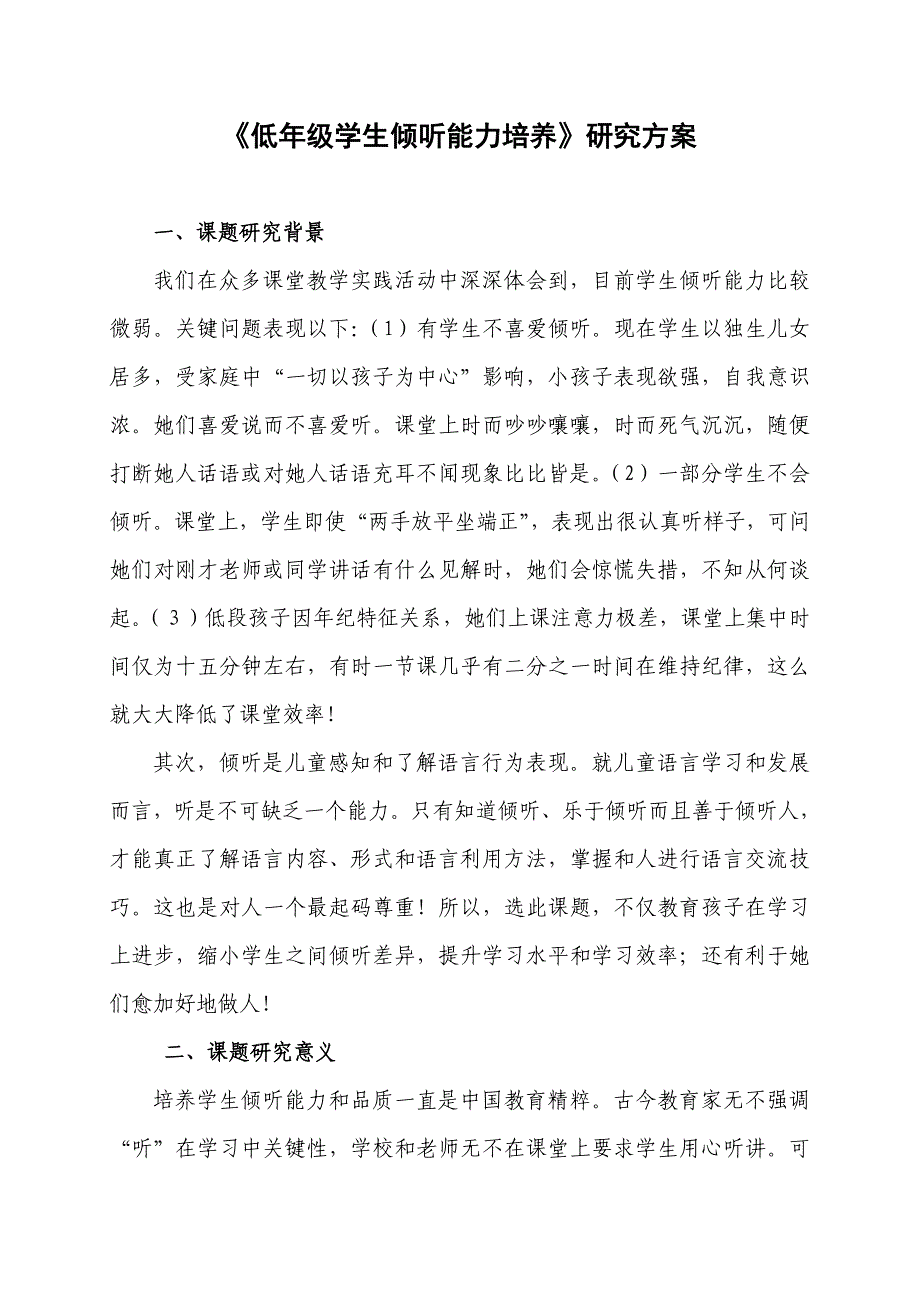 《低年级学生倾听能力培养》研究方案
一、课题研究背景
我们在众多课堂教学实践活动中深深体会到，目前学生倾听能力比较
微弱。关键问题表现以下：（1）有学生不喜爱倾听。现在学生以独生儿女
居多，受家庭中“一切以孩子为中心”影响，小孩子表现欲强，自我意识
浓。她们喜爱说而不喜爱听。课堂上时而吵吵嚷嚷，时而死气沉沉，随便
打断她人话语或对她人话语充耳不闻现象比比皆是。（2）一部分学生不会
倾听。课堂上，学生即使“两手放平坐端正”，表现出很认真听样子，可问
她们对刚才老师或同学讲话有什么见解时，她们会惊慌失措，不知从何谈
起。（3）低段孩子因年纪特征关系，她们上课注意力极差，课堂上集中时
间仅为十五分钟左右，有时一节课几乎有二分之一时间在维持纪律，这么
就大大降低了课堂效率！
其次，倾听是儿童感知和了解语言行为表现。就儿童语言学习和发展
而言，听是不可缺乏一个能力。只有知道倾听、乐于倾听而且善于倾听人，
才能真正了解语言内容、形式和语言利用方法，掌握和人进行语言交流技
巧。这也是对人一个最起码尊重！所以，选此课题，不仅教育孩子在学习
上进步，缩小学生之间倾听差异，提升学习水平和学习效率；还有利于她
们愈加好地做人！
二、课题研究意义
培养学生倾听能力和品质一直是中国教育精粹。古今教育家无不强调
“听”在学习中关键性，学校和老师无不在课堂上要求学生用心听讲。可